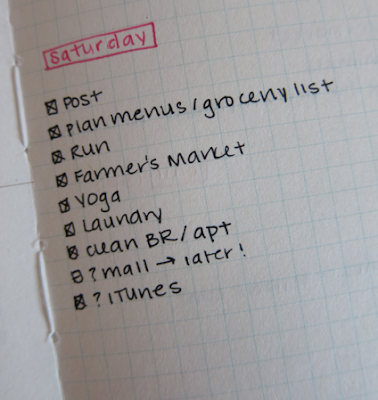 saturday
Post
Plan menus / grocery list
Run
Farmer's Market
Yoga
Laundry
clean BR / apt
? mall → later!
? iTunes